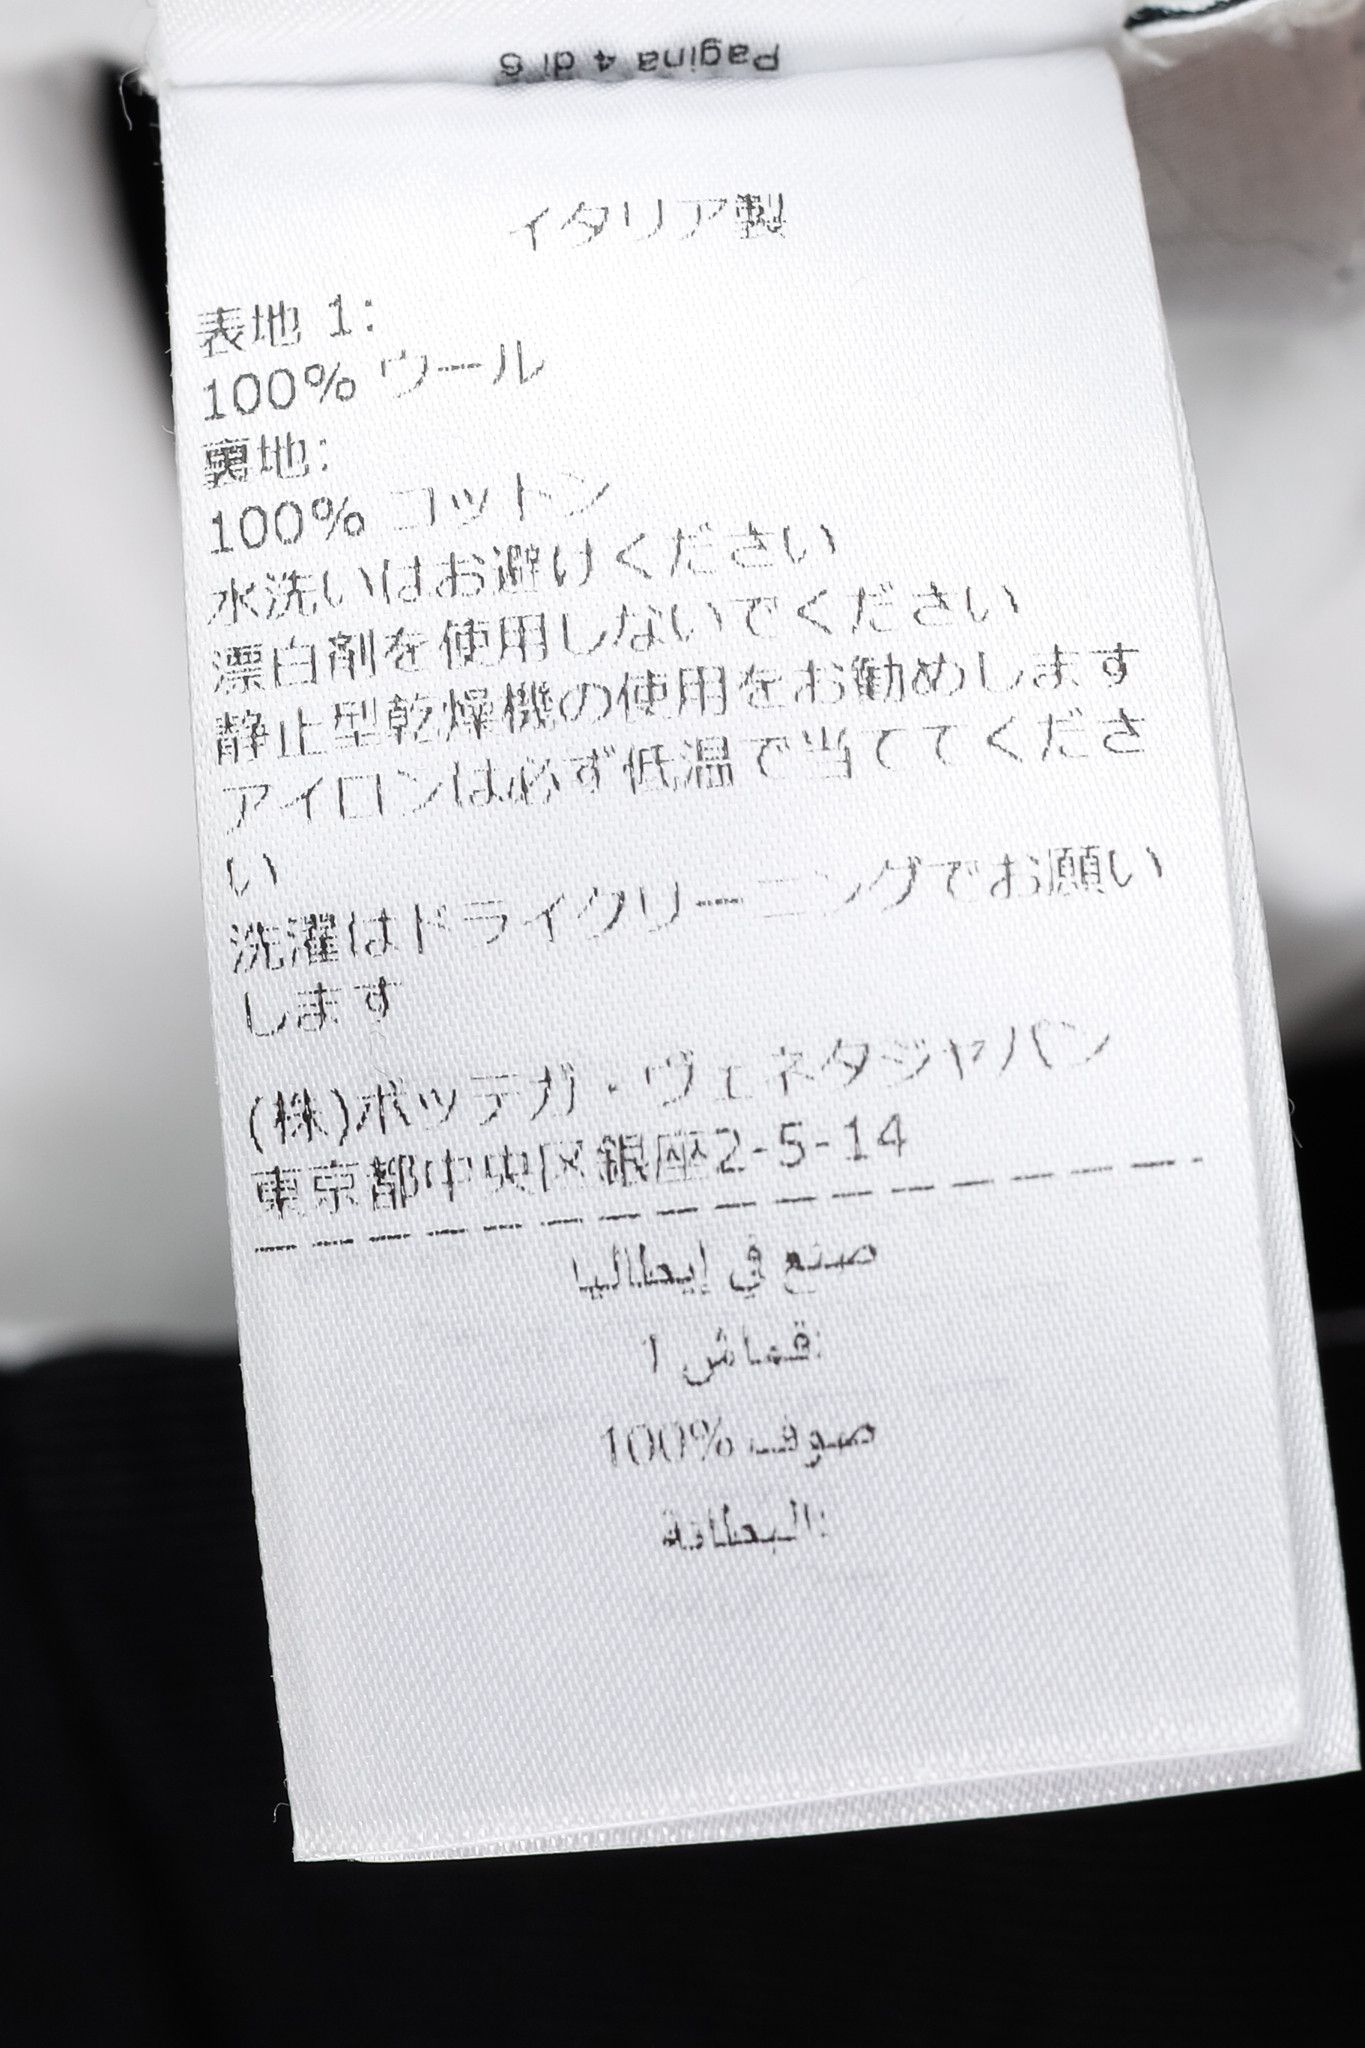 Pagina 4 di 6
イタリア製
表地 1:
100% ウール
裏地:
100% コットン
水洗いはお避けください
漂白剤を使用しないでください
静止型乾燥機の使用をお勧めします
アイロンは必ず低温で当ててくださ
い
洗濯はドライクリーニングでお願い
します
(株)ボッテガ・ヴェネタジャパン
東京都中央区銀座2-5-14
صنع في إيطاليا
:قماش 1
100% صوف
:البطانة